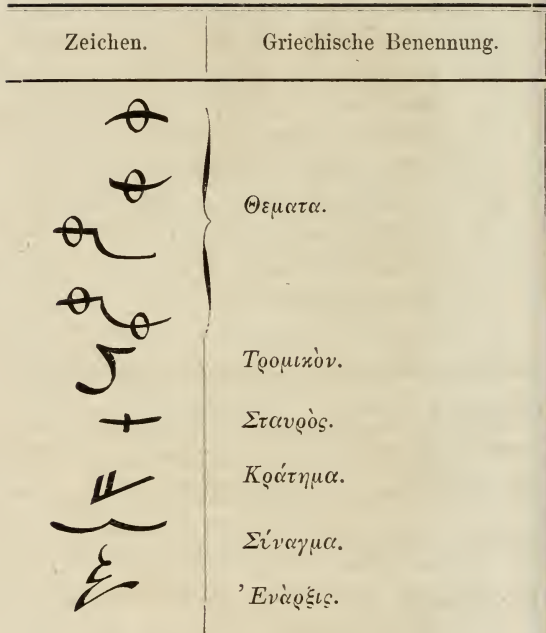 Zeichen. Griechische Benennung.
Θεματα.
Τρομικὸν.
Σταυρὸς.
Κράτημα.
Σίναγμα.
Ἐνὰρξις.